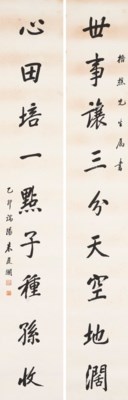 世事讓三分天空地濶
搢熙先生屬書
心田培一點子種孫收
乙卯端陽